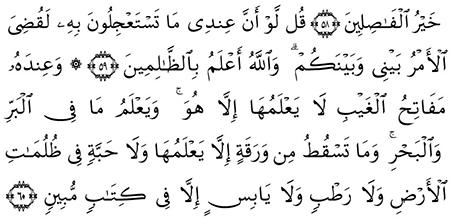 خَيْرُ ٱلْفَـٰصِلِينَ ۝٥٨ قُل لَّوْ أَنَّ عِندِى مَا تَسْتَعْجِلُونَ بِهِۦ لَقُضِىَ
ٱلْأَمْرُ بَيْنِى وَبَيْنَكُمْ ۗ وَٱللَّهُ أَعْلَمُ بِٱلظَّـٰلِمِينَ ۝٥٩ ۞ وَعِندَهُۥ
مَفَاتِحُ ٱلْغَيْبِ لَا يَعْلَمُهَا إِلَّا هُوَ ۚ وَيَعْلَمُ مَا فِى ٱلْبَرِّ
وَٱلْبَحْرِ ۚ وَمَا تَسْقُطُ مِن وَرَقَةٍ إِلَّا يَعْلَمُهَا وَلَا حَبَّةٍ فِى ظُلُمَـٰتِ
ٱلْأَرْضِ وَلَا رَطْبٍ وَلَا يَابِسٍ إِلَّا فِى كِتَـٰبٍ مُّبِينٍ ۝٦٠